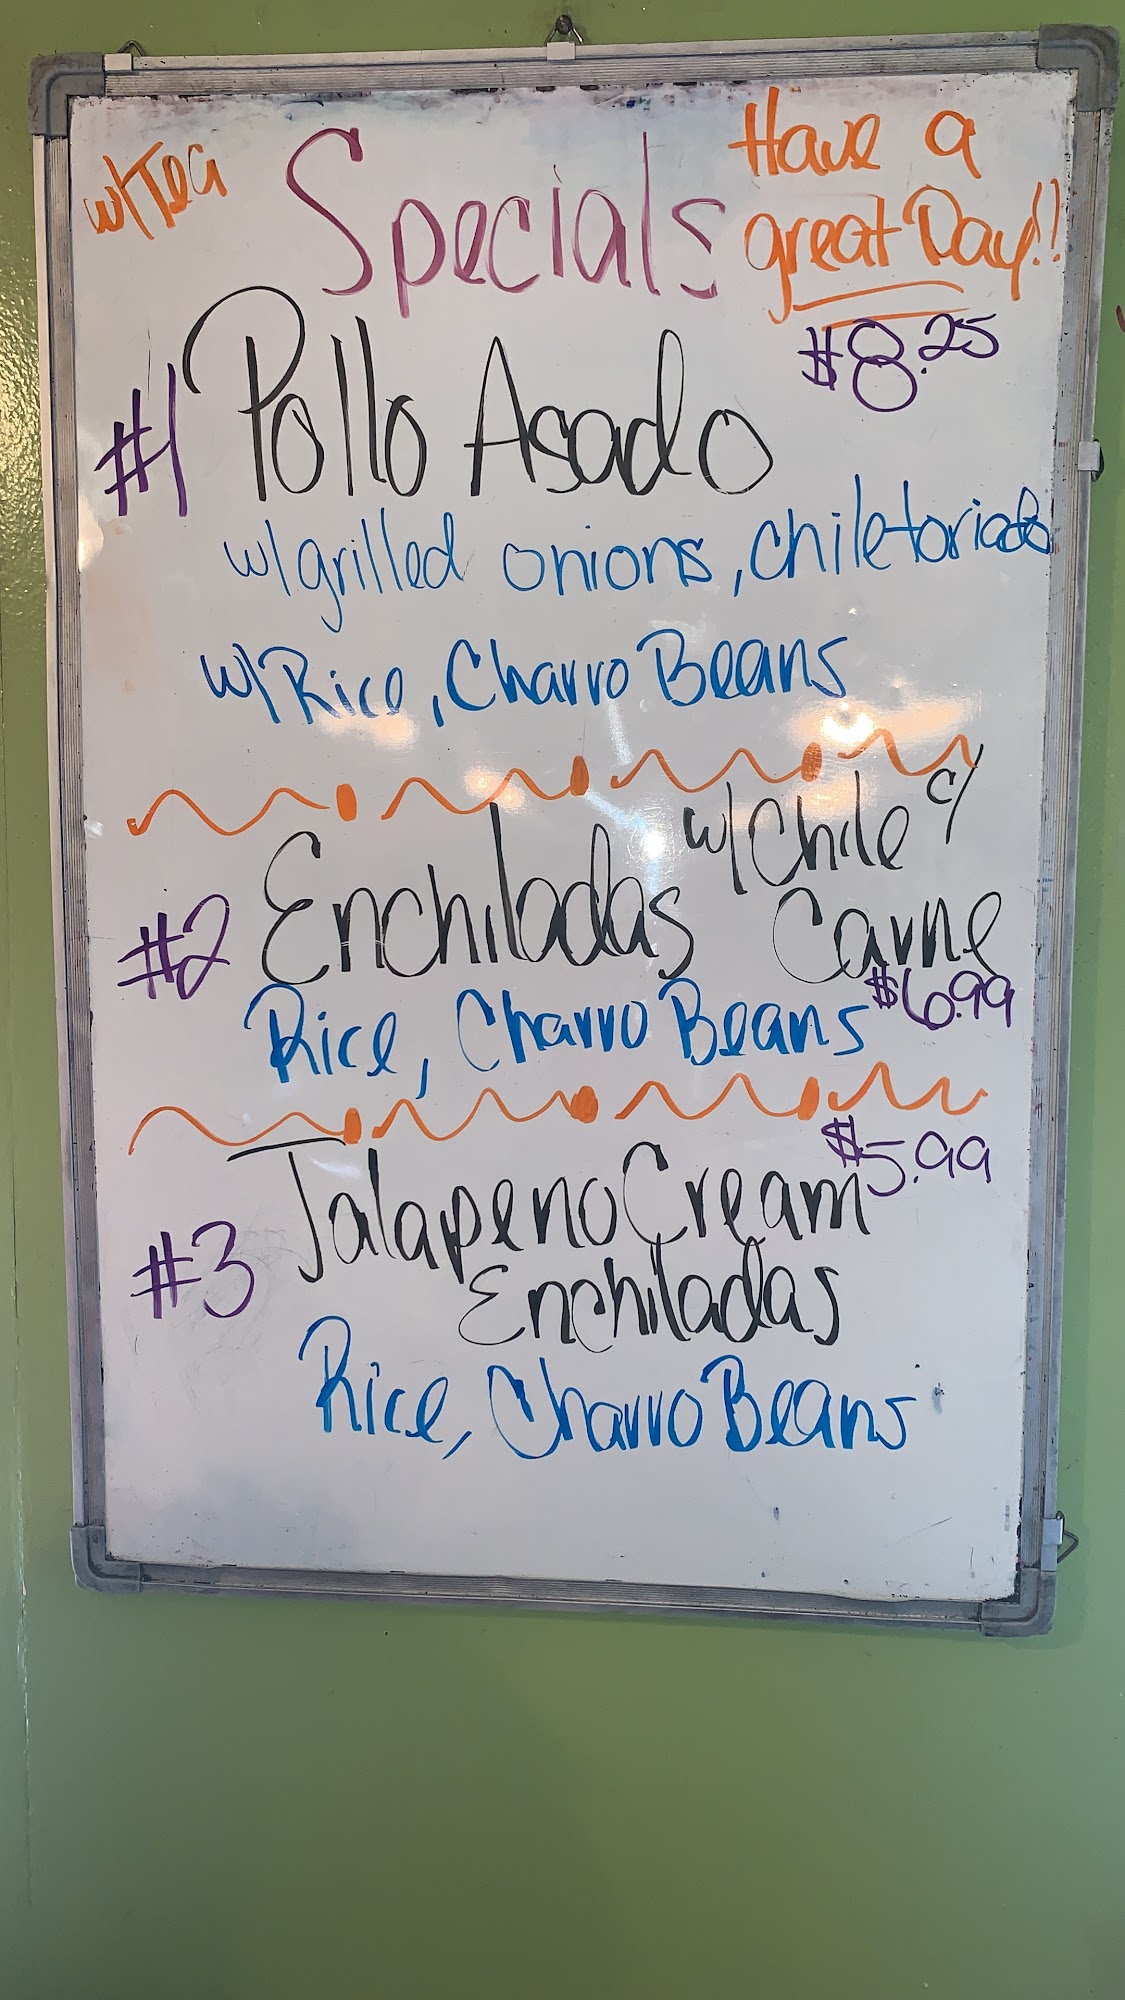 w/Tea
Specials
Have a
great Day!!
$8.25
#1 Pollo Asado
w/grilled onions, chiletoriado
w/Rice, Charro Beans
#2 Enchiladas w/Chile c/
Carne
$6.99
Rice, Charro Beans
$5.99
#3 Jalapeno Cream
Enchiladas
Rice, Charro Beans